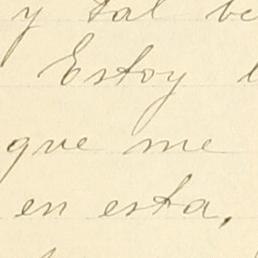 y tal be
Estoy
que me
en esta,